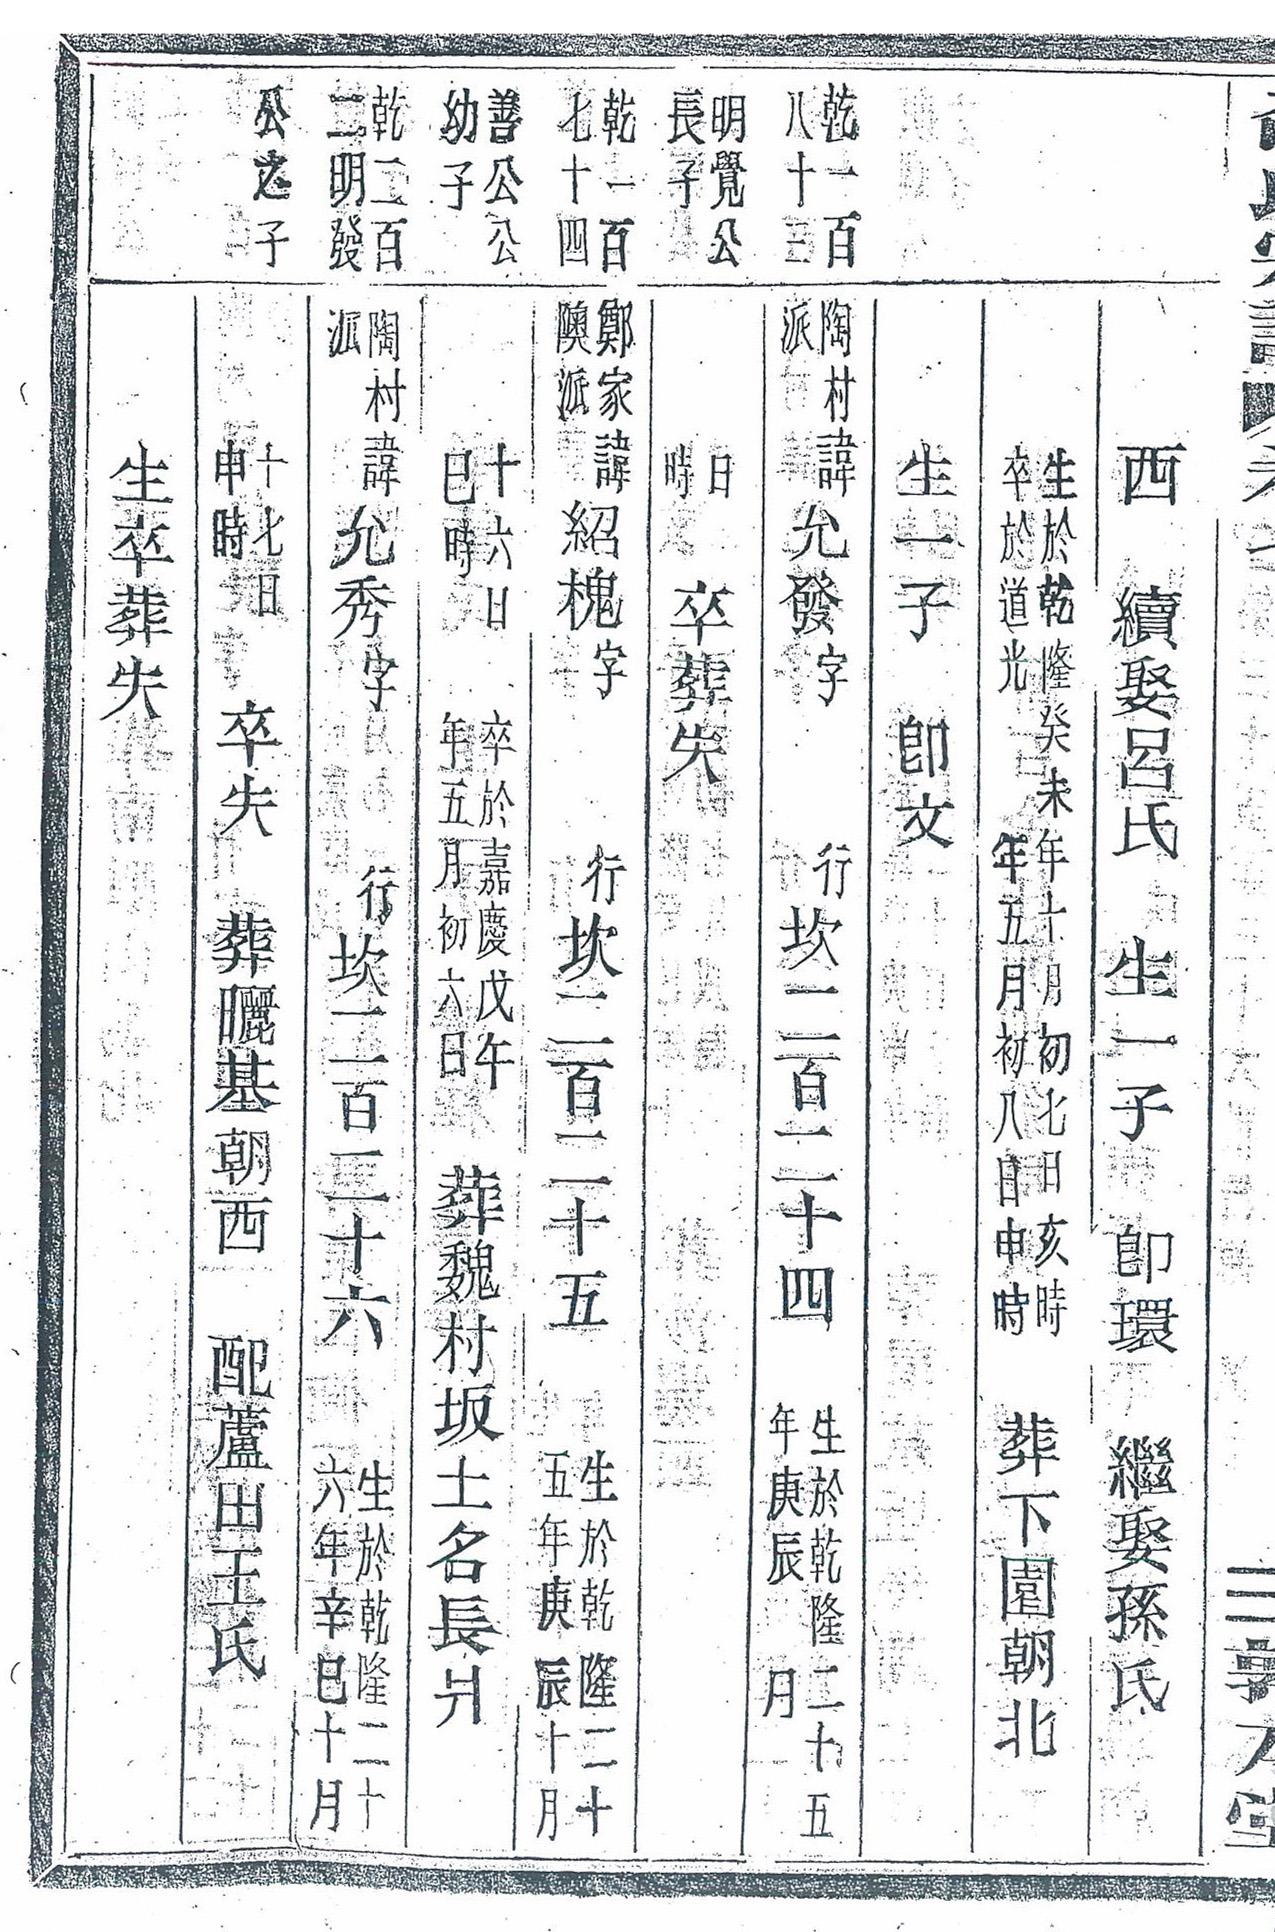 西　續娶呂氏　生一子　卽環　繼娶孫氏
生於乾隆癸未年十月初七日亥時
卒於道光　年五月初八日申時
葬下園朝北
生一子　卽文
乾一百
八十三
陶村
派
諱允發字　行坎二百二十四
生於乾隆二十五
年庚辰　月
明覺公
長子
日
時
卒葬失
乾一百
七十四
鄭家
隩派
諱紹槐字　行坎二百二十五
生於乾隆二十
五年庚辰十月
善公公
幼子
十六日
巳時
卒於嘉慶戊午
年五月初六日
葬魏村坂土名長爿
乾二百
二明發
陶村
派
諱允秀字　行坎二百二十六
生於乾隆二十
六年辛巳十月
公之子
十七日
申時
卒失　葬曬基朝西　配蘆田王氏
生卒葬失